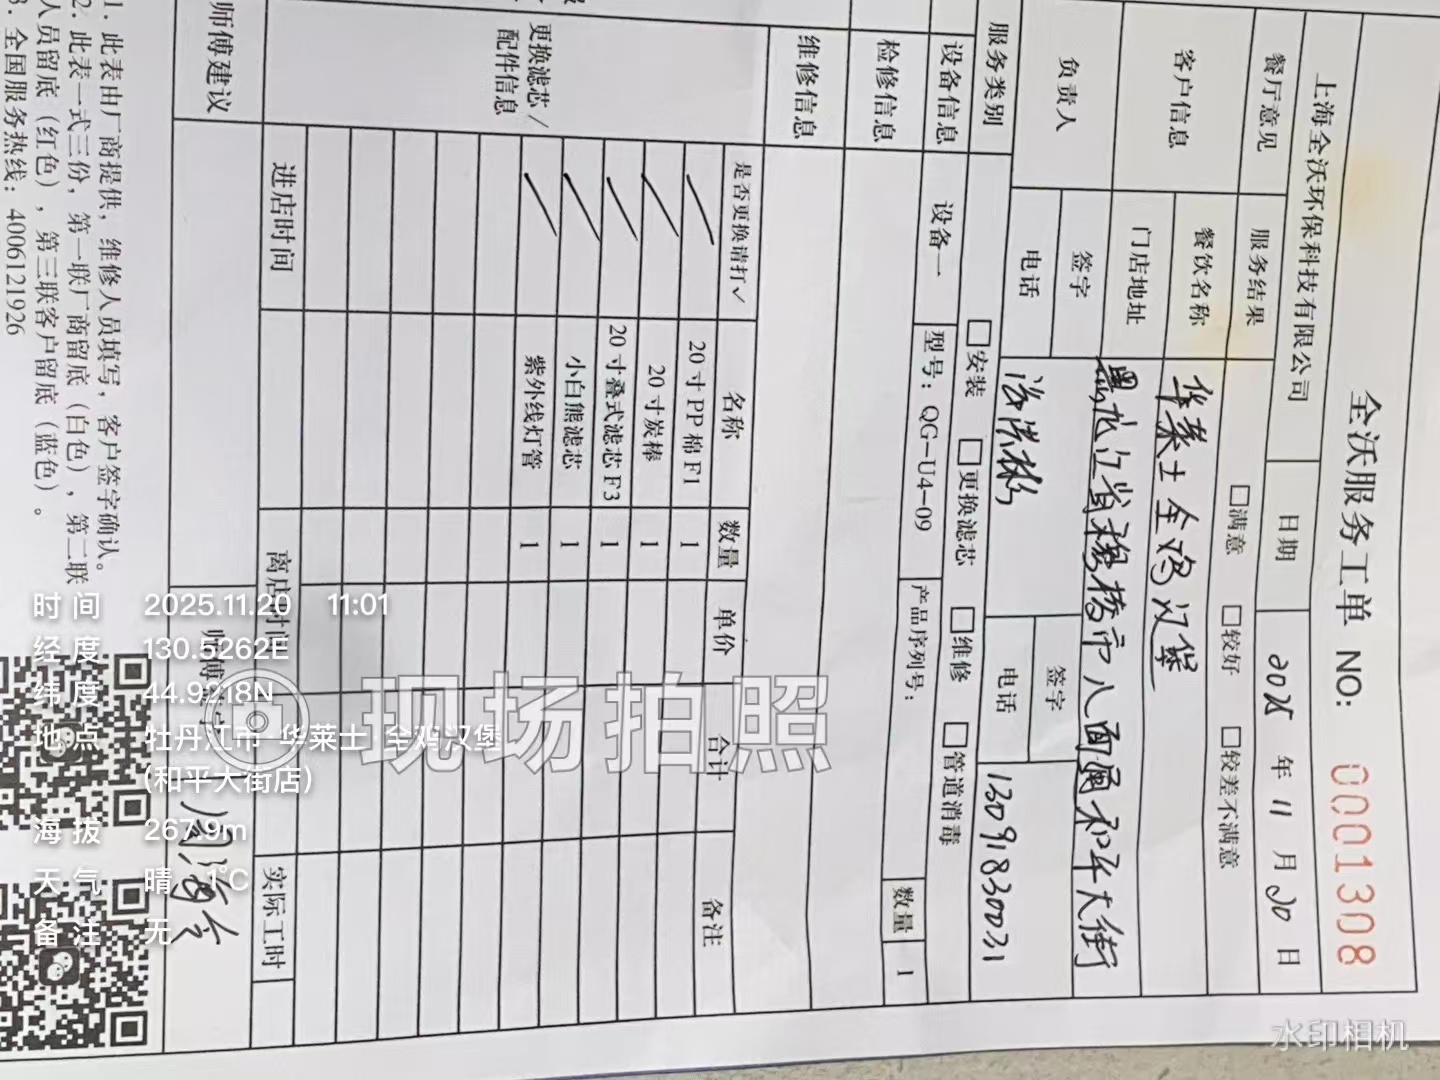 全沃服务工单 NO: 0001308
上海全沃环保科技有限公司 日期 2025 年 11 月 20 日
餐厅意见 服务结果 □满意 □较好 □较差不满意
客户信息 餐饮名称 华莱士全鸡汉堡
门店地址 黑龙江省穆棱市八面通和平大街
负责人 签字 签字
电话 电话 13091830031
服务类别 □安装 □更换滤芯 □维修 □管道消毒
设备信息 设备一 型号：QG-U4-09 产品序列号： 数量 1
检修信息
维修信息
更换滤芯/
配件信息
是否更换请打✓ 名称 数量 单价 合计 备注
20寸PP棉F1 1
20寸炭棒 1
20寸叠式滤芯F3 1
小白熊滤芯 1
紫外线灯管 1
进店时间 离店时间 实际工时
师傅建议
1. 此表由厂商提供，维修人员填写，客户签字确认。
2. 此表一式三份，第一联厂商留底（白色），第二联
人员留底（红色），第三联客户留底（蓝色）。
3. 全国服务热线：4006121926
现场拍照
时间 2025.11.20 11:01
经度 130.5262E
纬度 44.9218N
地点 牡丹江市·华莱士·全鸡汉堡
(和平大街店)
海拔 267.9m
天气 晴 -1℃
备注 无
水印相机